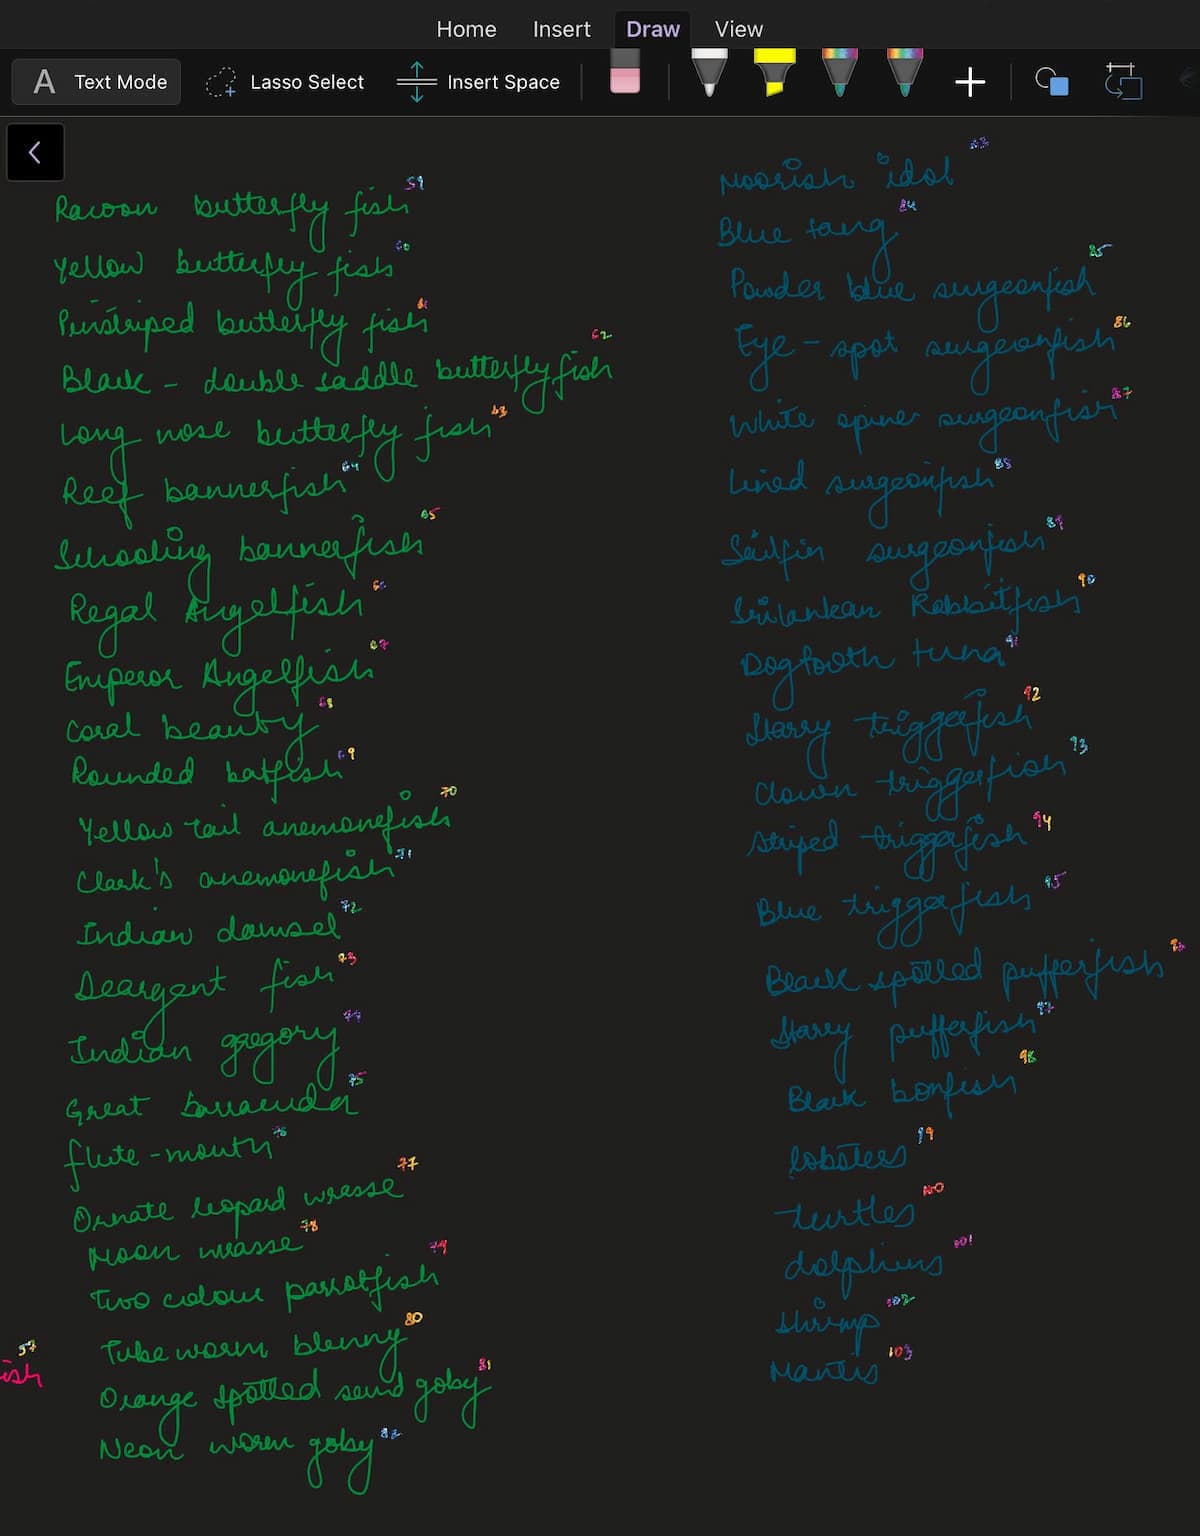 Home Insert Draw View
A Text Mode Lasso Select Insert Space
Racoon butterfly fish 59
Yellow butterfly fish 60
Pinstriped butterfly fish 61
Black - double saddle butterfly fish 62
Long nose butterfly fish 63
Reef bannerfish 64
Schooling bannerfish 65
Regal Angelfish 66
Emperor Angelfish 67
Coral beauty 68
Rounded batfish 69
Yellow tail anemonefish 70
Clark's anemonefish 71
Indian damsel 72
Seargent fish 73
Indian gregory 74
Great barracuda 75
flute-mouth 76
Ornate leopard wrasse 77
Moon wrasse 78
Two colour parrotfish 79
Tube worm blenny 80
Orange spotted sand goby 81
Neon worm goby 82
57
ish
Moorish idol 83
Blue tang 84
Powder blue surgeonfish 85
Eye - spot surgeonfish 86
White spine surgeonfish 87
Lined surgeonfish 88
Sailfin surgeonfish 89
Srilankan Rabbitfish 90
Dogtooth tuna 91
Starry triggerfish 92
Clown triggerfish 93
Striped triggerfish 94
Blue triggerfish 95
Black spotted pufferfish 96
Starry pufferfish 97
Black bonfish 98
lobsters 99
turtles 100
dolphins 101
Shrimp 102
Mantis 103